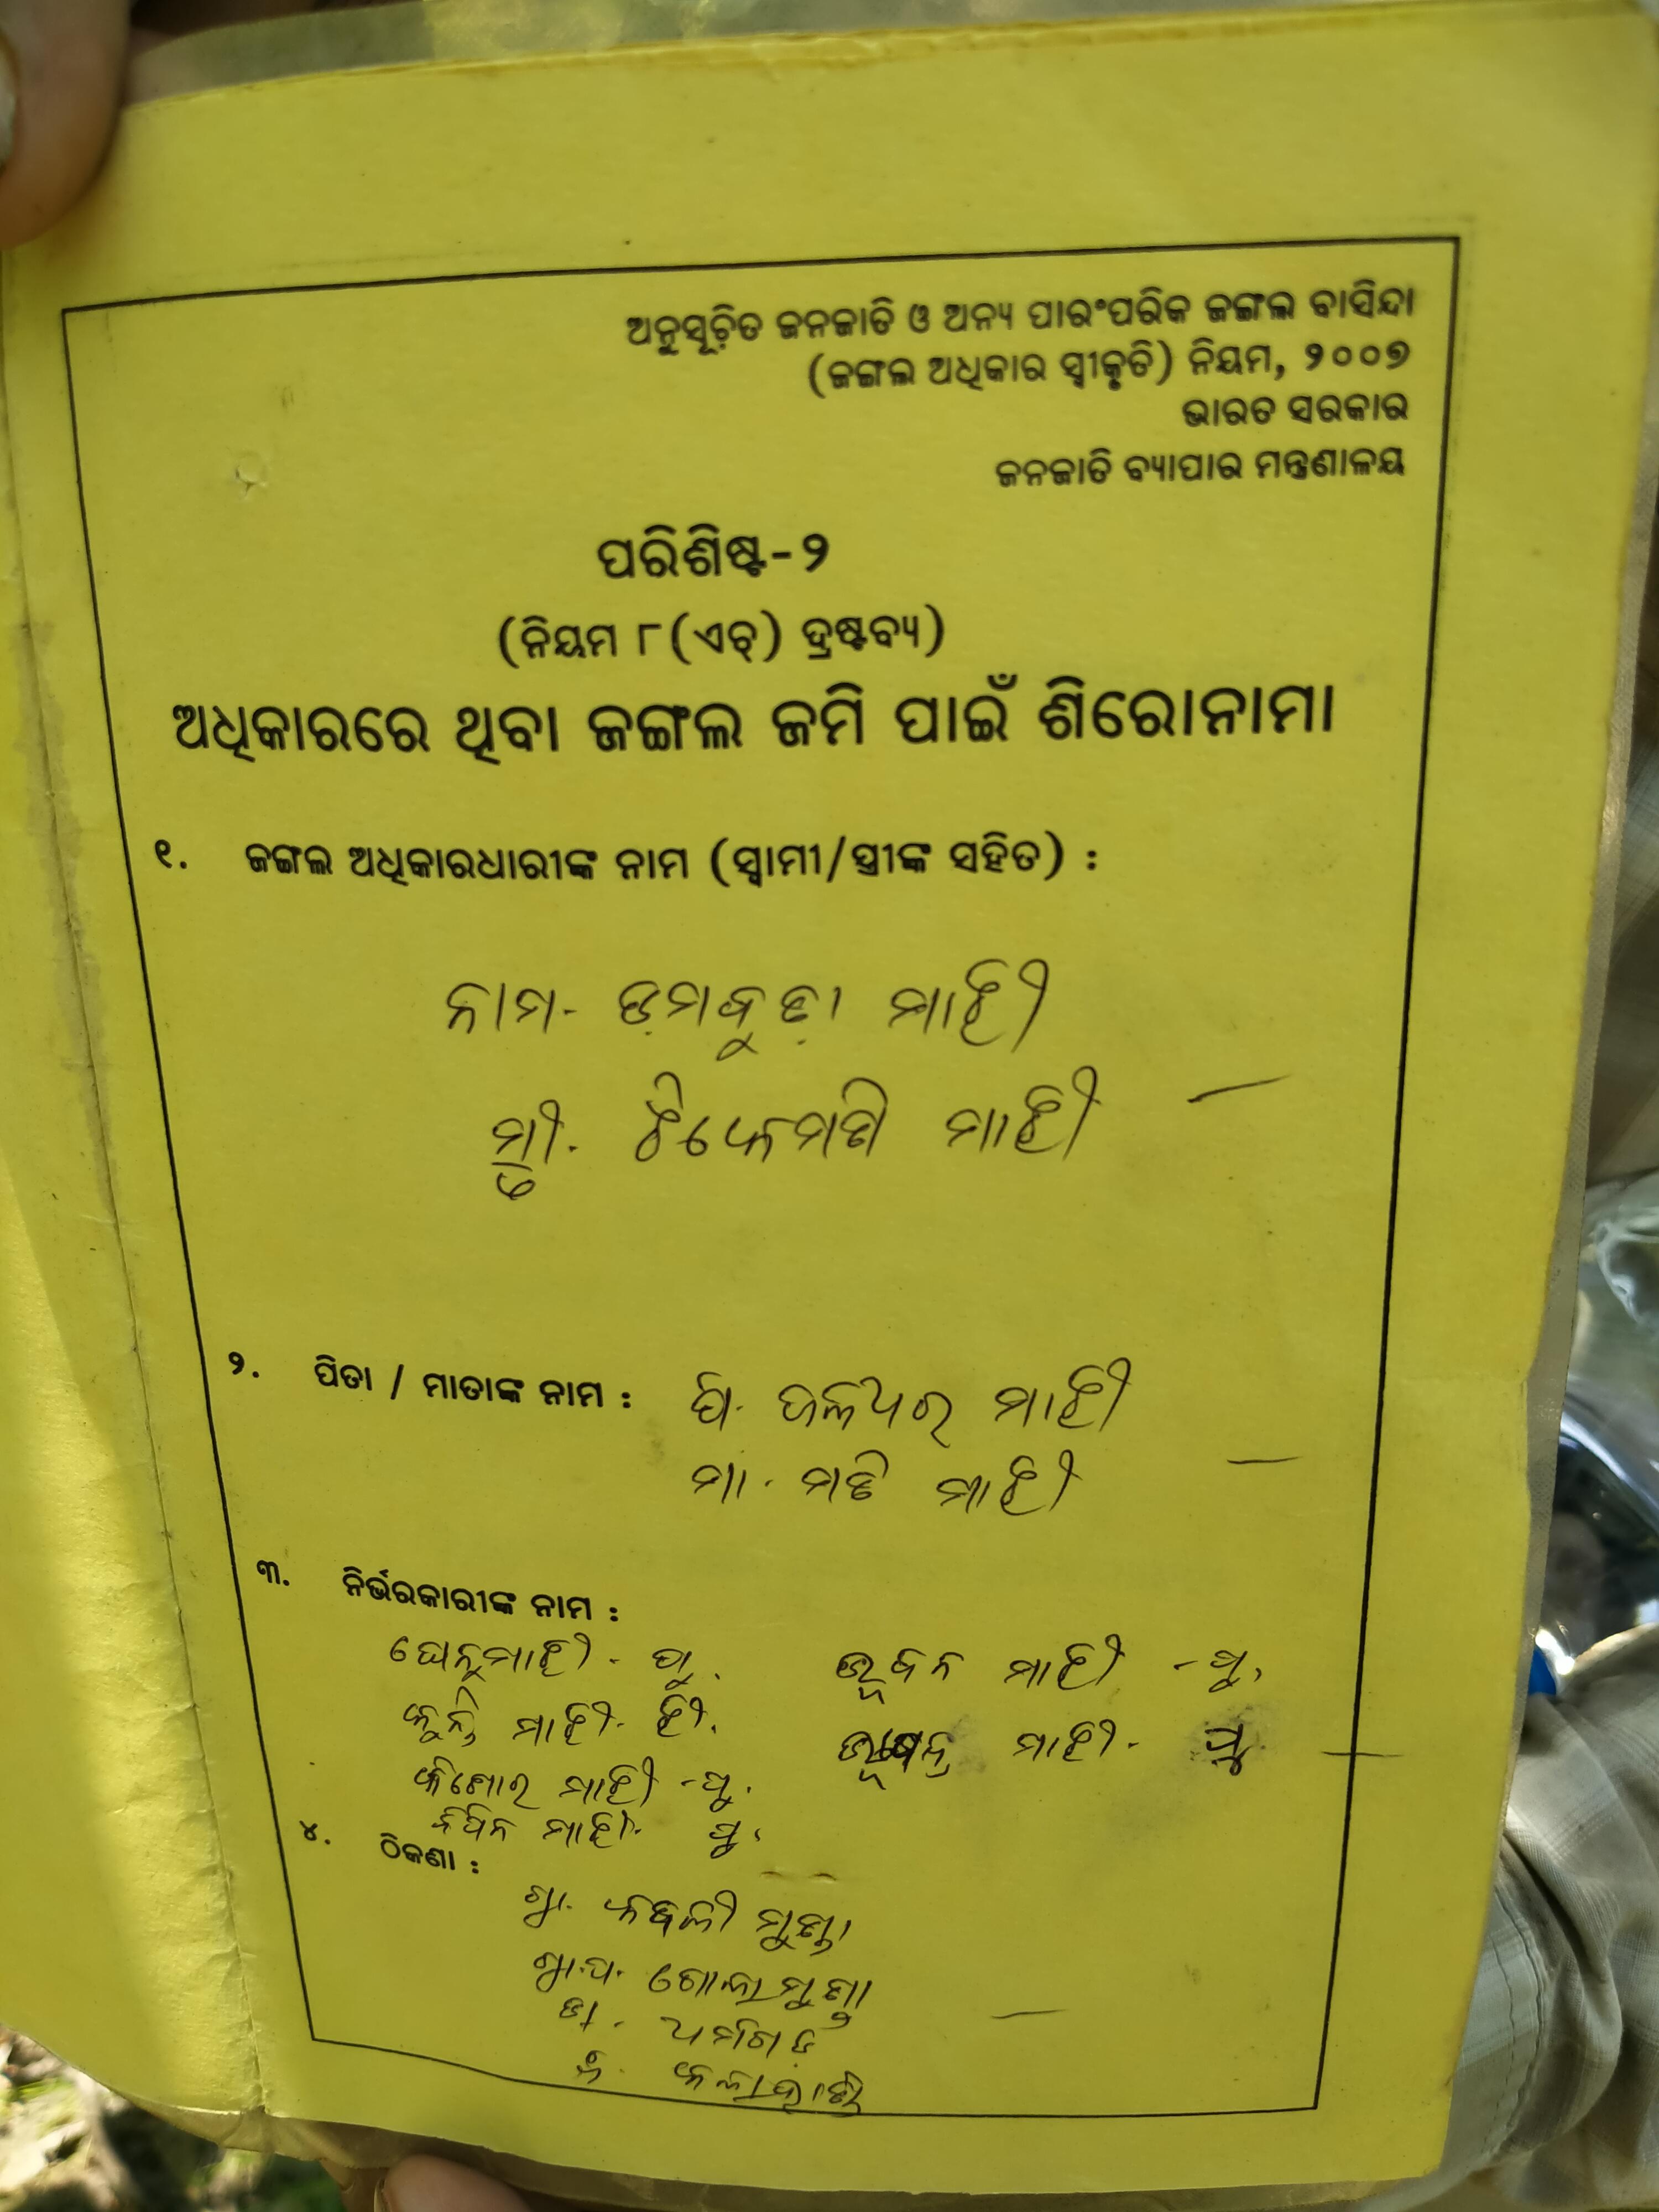 ଅନୁସୂଚିତ ଜନଜାତି ଓ ଅନ୍ୟ ପାରଂପରିକ ଜଙ୍ଗଲ ବାସିନ୍ଦା
(ଜଙ୍ଗଲ ଅଧିକାର ସ୍ୱୀକୃତି) ନିୟମ, ୨୦୦୭
ଭାରତ ସରକାର
ଜନଜାତି ବ୍ୟାପାର ମନ୍ତ୍ରଣାଳୟ
ପରିଶିଷ୍ଟ-୨
(ନିୟମ ୮(ଏଚ୍) ଦ୍ରଷ୍ଟବ୍ୟ)
ଅଧିକାରରେ ଥିବା ଜଙ୍ଗଲ ଜମି ପାଇଁ ଶିରୋନାମା
୧. ଜଙ୍ଗଲ ଅଧିକାରଧାରୀଙ୍କ ନାମ (ସ୍ୱାମୀ/ସ୍ତ୍ରୀଙ୍କ ସହିତ) :
ନାମ- ଡମବୁଢ଼ା ମାଝି
ସ୍ତ୍ରୀ. ମାଝି
୨. ପିତା / ମାତାଙ୍କ ନାମ : ପି. ଜଳଧର ମାଝି
ମା. ମାଝି
୩. ନିର୍ଭରକାରୀଙ୍କ ନାମ :
ଘେନୁ ମାଝି - ପୁ.
ମାଝି - ପୁ.
କୁନ୍ତି ମାଝି. ଝି.
ମାଝି - ପୁ
କିଶୋର ମାଝି - ପୁ.
ବିପିନ ମାଝି. ପୁ.
୪. ଠିକଣା :
ଗ୍ରା. ମୁଣ୍ଡା
ଗ୍ରା.ପ. ଗୋଲାମୁଣ୍ଡା
ଥା. ଧର୍ମଗଡ଼
ଜି. କଳାହାଣ୍ଡି